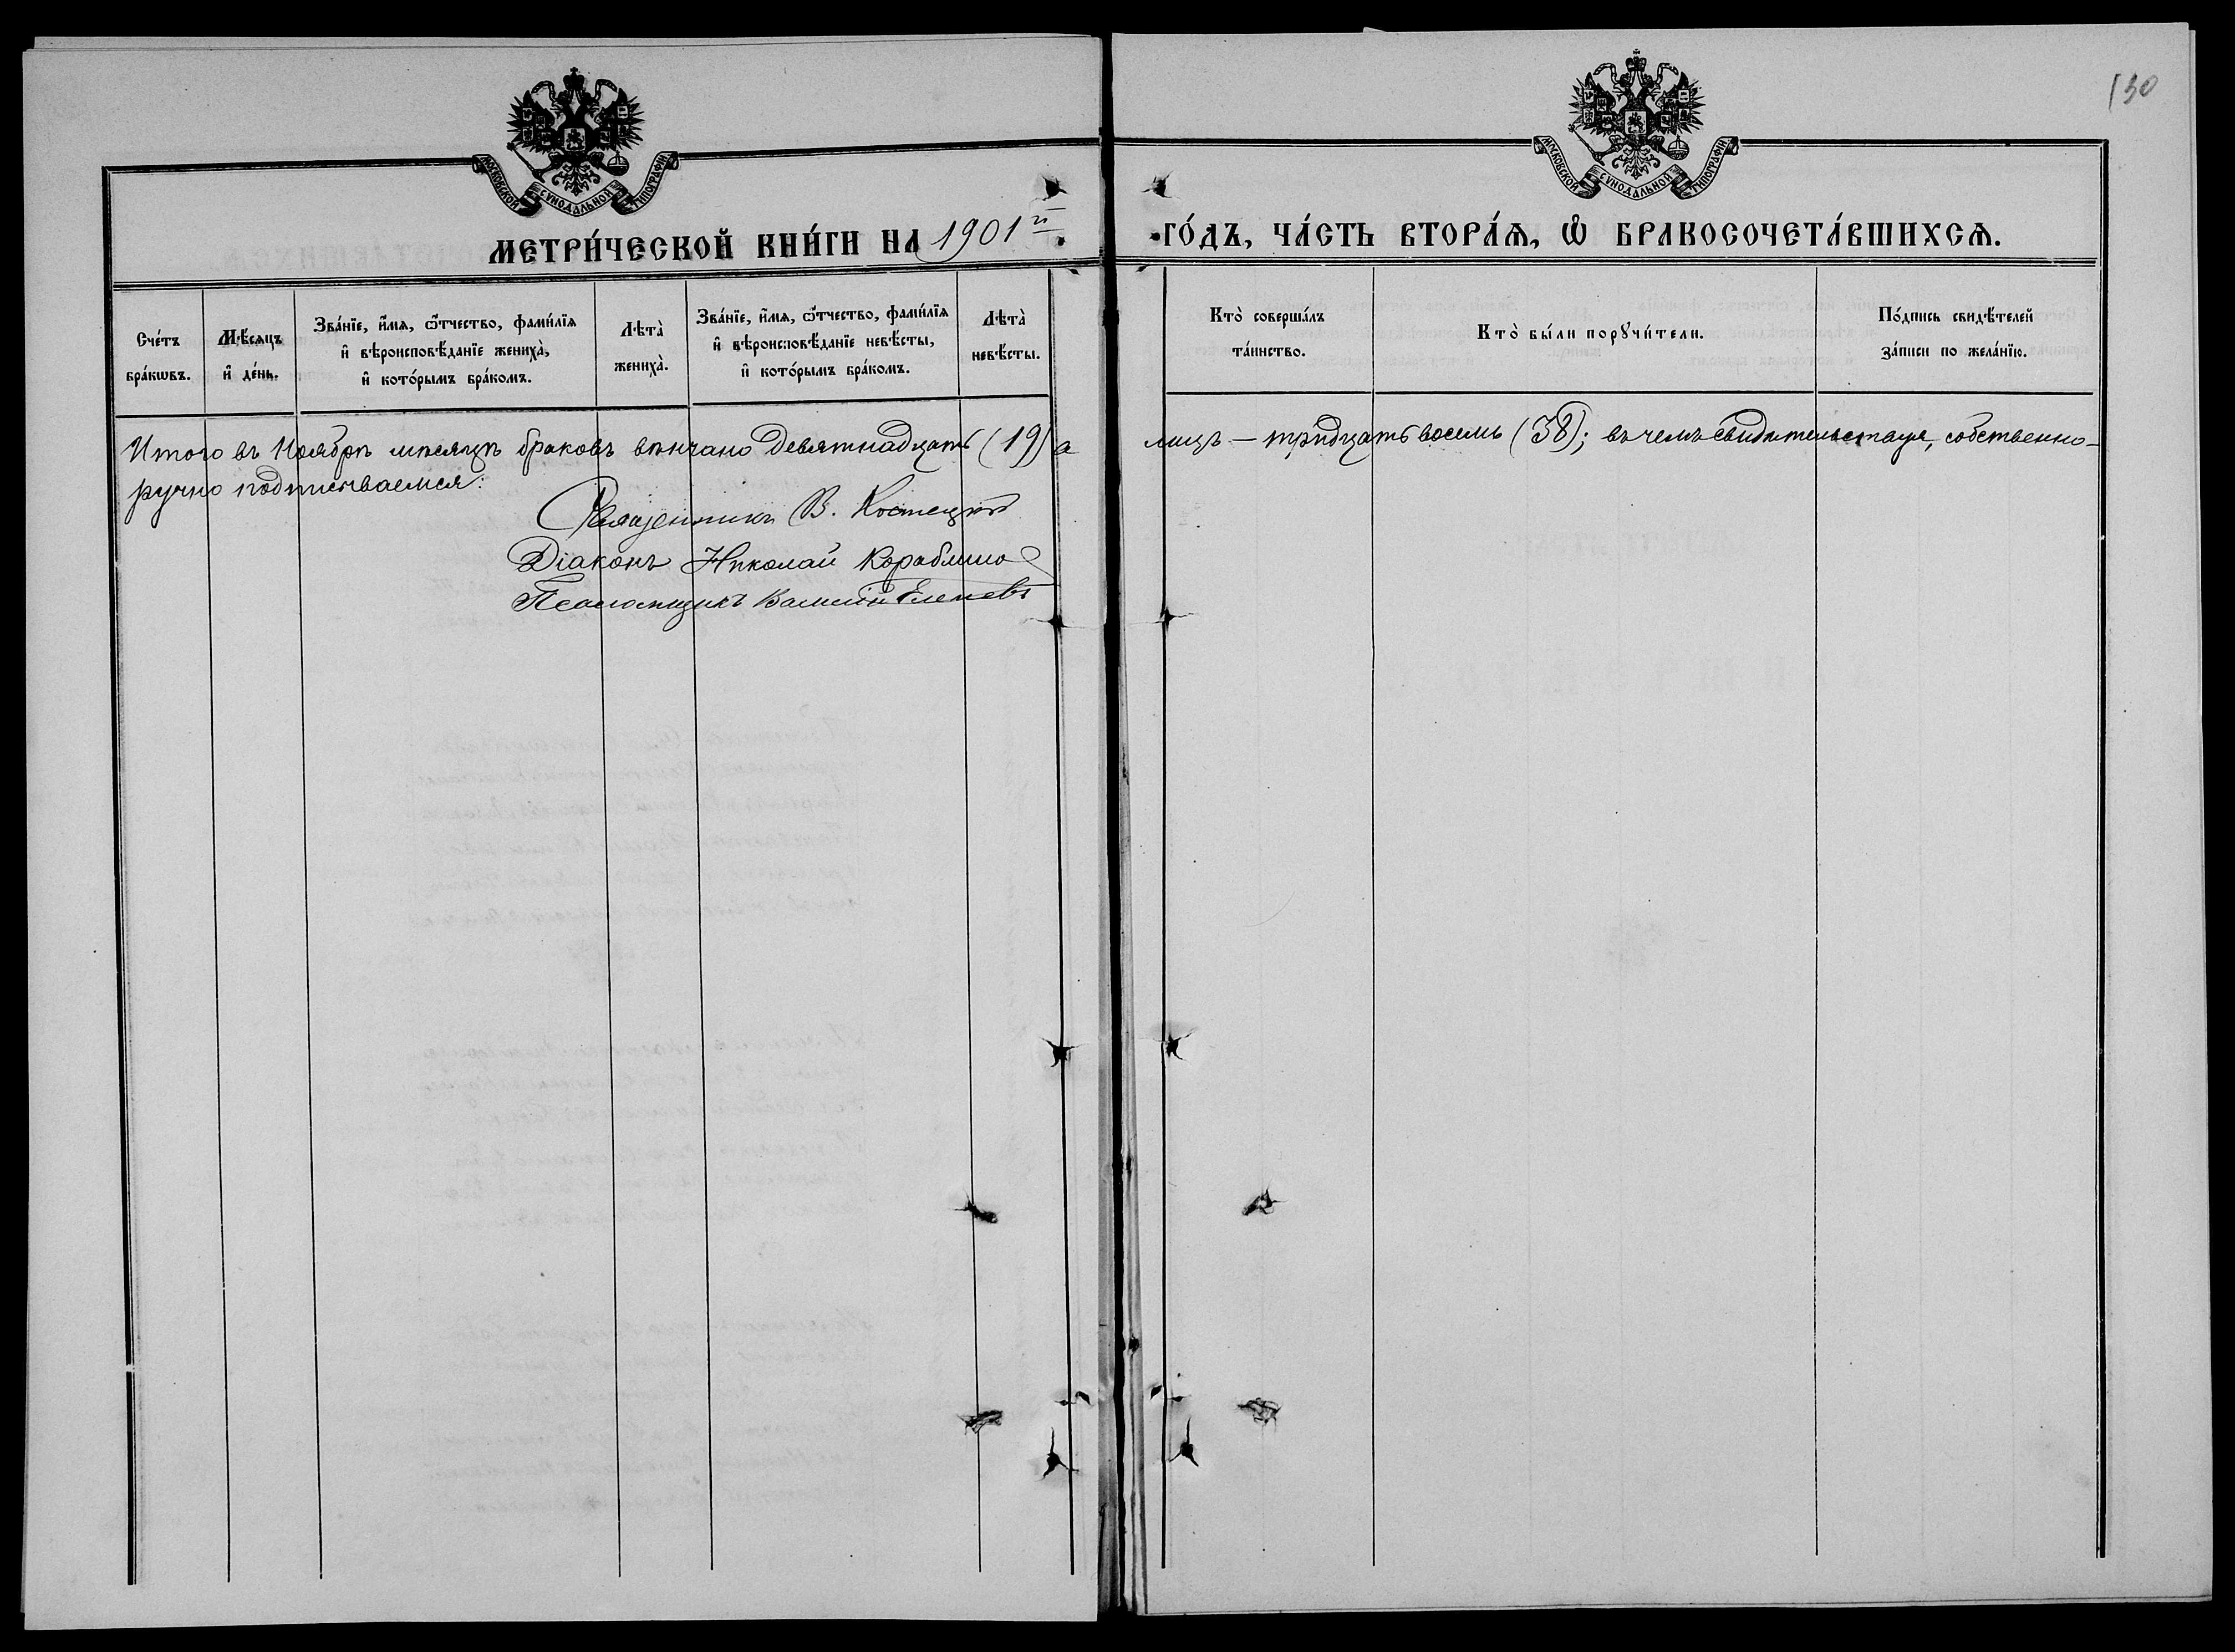 130
МОСКОВСКОЙ СѴНОДАЛЬНОЙ ТИПОГРАФІИ
МОСКОВСКОЙ СѴНОДАЛЬНОЙ ТИПОГРАФІИ
МЕТРИ́ЧЕСКОЙ КНИ́ГИ НА 1901й ГО́ДЪ, ЧА́СТЬ ВТОРА́Ѧ, Ѡ҆ БРАКОСОЧЕТА́ВШИХСѦ.
Сче́тъ бра́кѡвъ.
Мѣ́сяцъ и҆ де́нь.
Зва́нїе, и҆́мѧ, ѻ҆́тчество, фами́лїѧ и҆ вѣроисповѣ́данїе жениха̀, и҆ кото́рымъ бра́комъ.
Лѣта̀ жениха̀.
Зва́нїе, и҆́мѧ, ѻ҆́тчество, фами́лїѧ и҆ вѣроисповѣ́данїе невѣ́сты, и҆ кото́рымъ бра́комъ.
Лѣта̀ невѣ́сты.
Кто̀ соверша́лъ та́инство.
Кто̀ бы́ли порꙋчи́тели.
По́дпись свидѣ́телей за́писи по жела́нїю.
Итого въ Ноябрѣ мѣсяцѣ браковъ вѣнчано девятнадцать (19) а лицъ — тридцать восемь (38); въ чемъ свидѣтельствуя, собственно-
ручно подписываемся:
Священникъ В. Костецкій
Діаконъ Николай
Псаломщикъ Василій